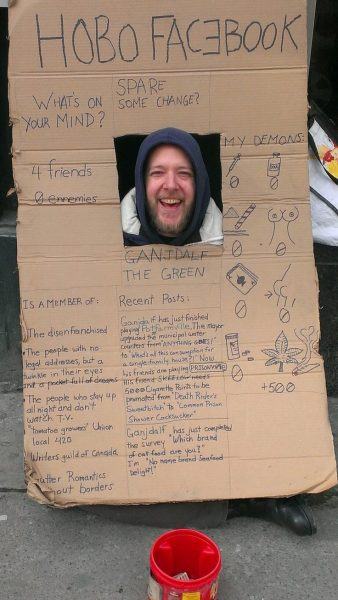 HOBO FACEBOOK
WHAT'S ON
YOUR MIND?
SPARE
SOME CHANGE?
4 friends
0 ennemies
MY DEMONS:
0
0
0
0
0
0
0
+500
GANJDALF
THE GREEN
IS A MEMBER OF:
The disenfranchised
• The people with no
legal addresses, but a
twinkle in their eyes
and a pocket full of dreams
• The people who stay up
all night and don't
watch T.V.
"tomatoe growers" Union
local 420
Writers guild of Canada
Romantics
out borders
Recent Posts:
Ganjdalf has just finished
playing Potfarmville. The mayor
upgraded the municipal water
counters from "ANYTHING GOES!"
to "What's all this consumption for
a single family house?!" Now
his friends are playing PRISONVILLE
His friend
5000 Cigarette Points to be
promoted from "Death Rider's
Sweetbitch" to "Common Prison
Shower Cocksucker"
Ganjdalf has just completed
the survey "Which brand
of cat food are you?"
I'm "No name brand Seafood
Delight!"